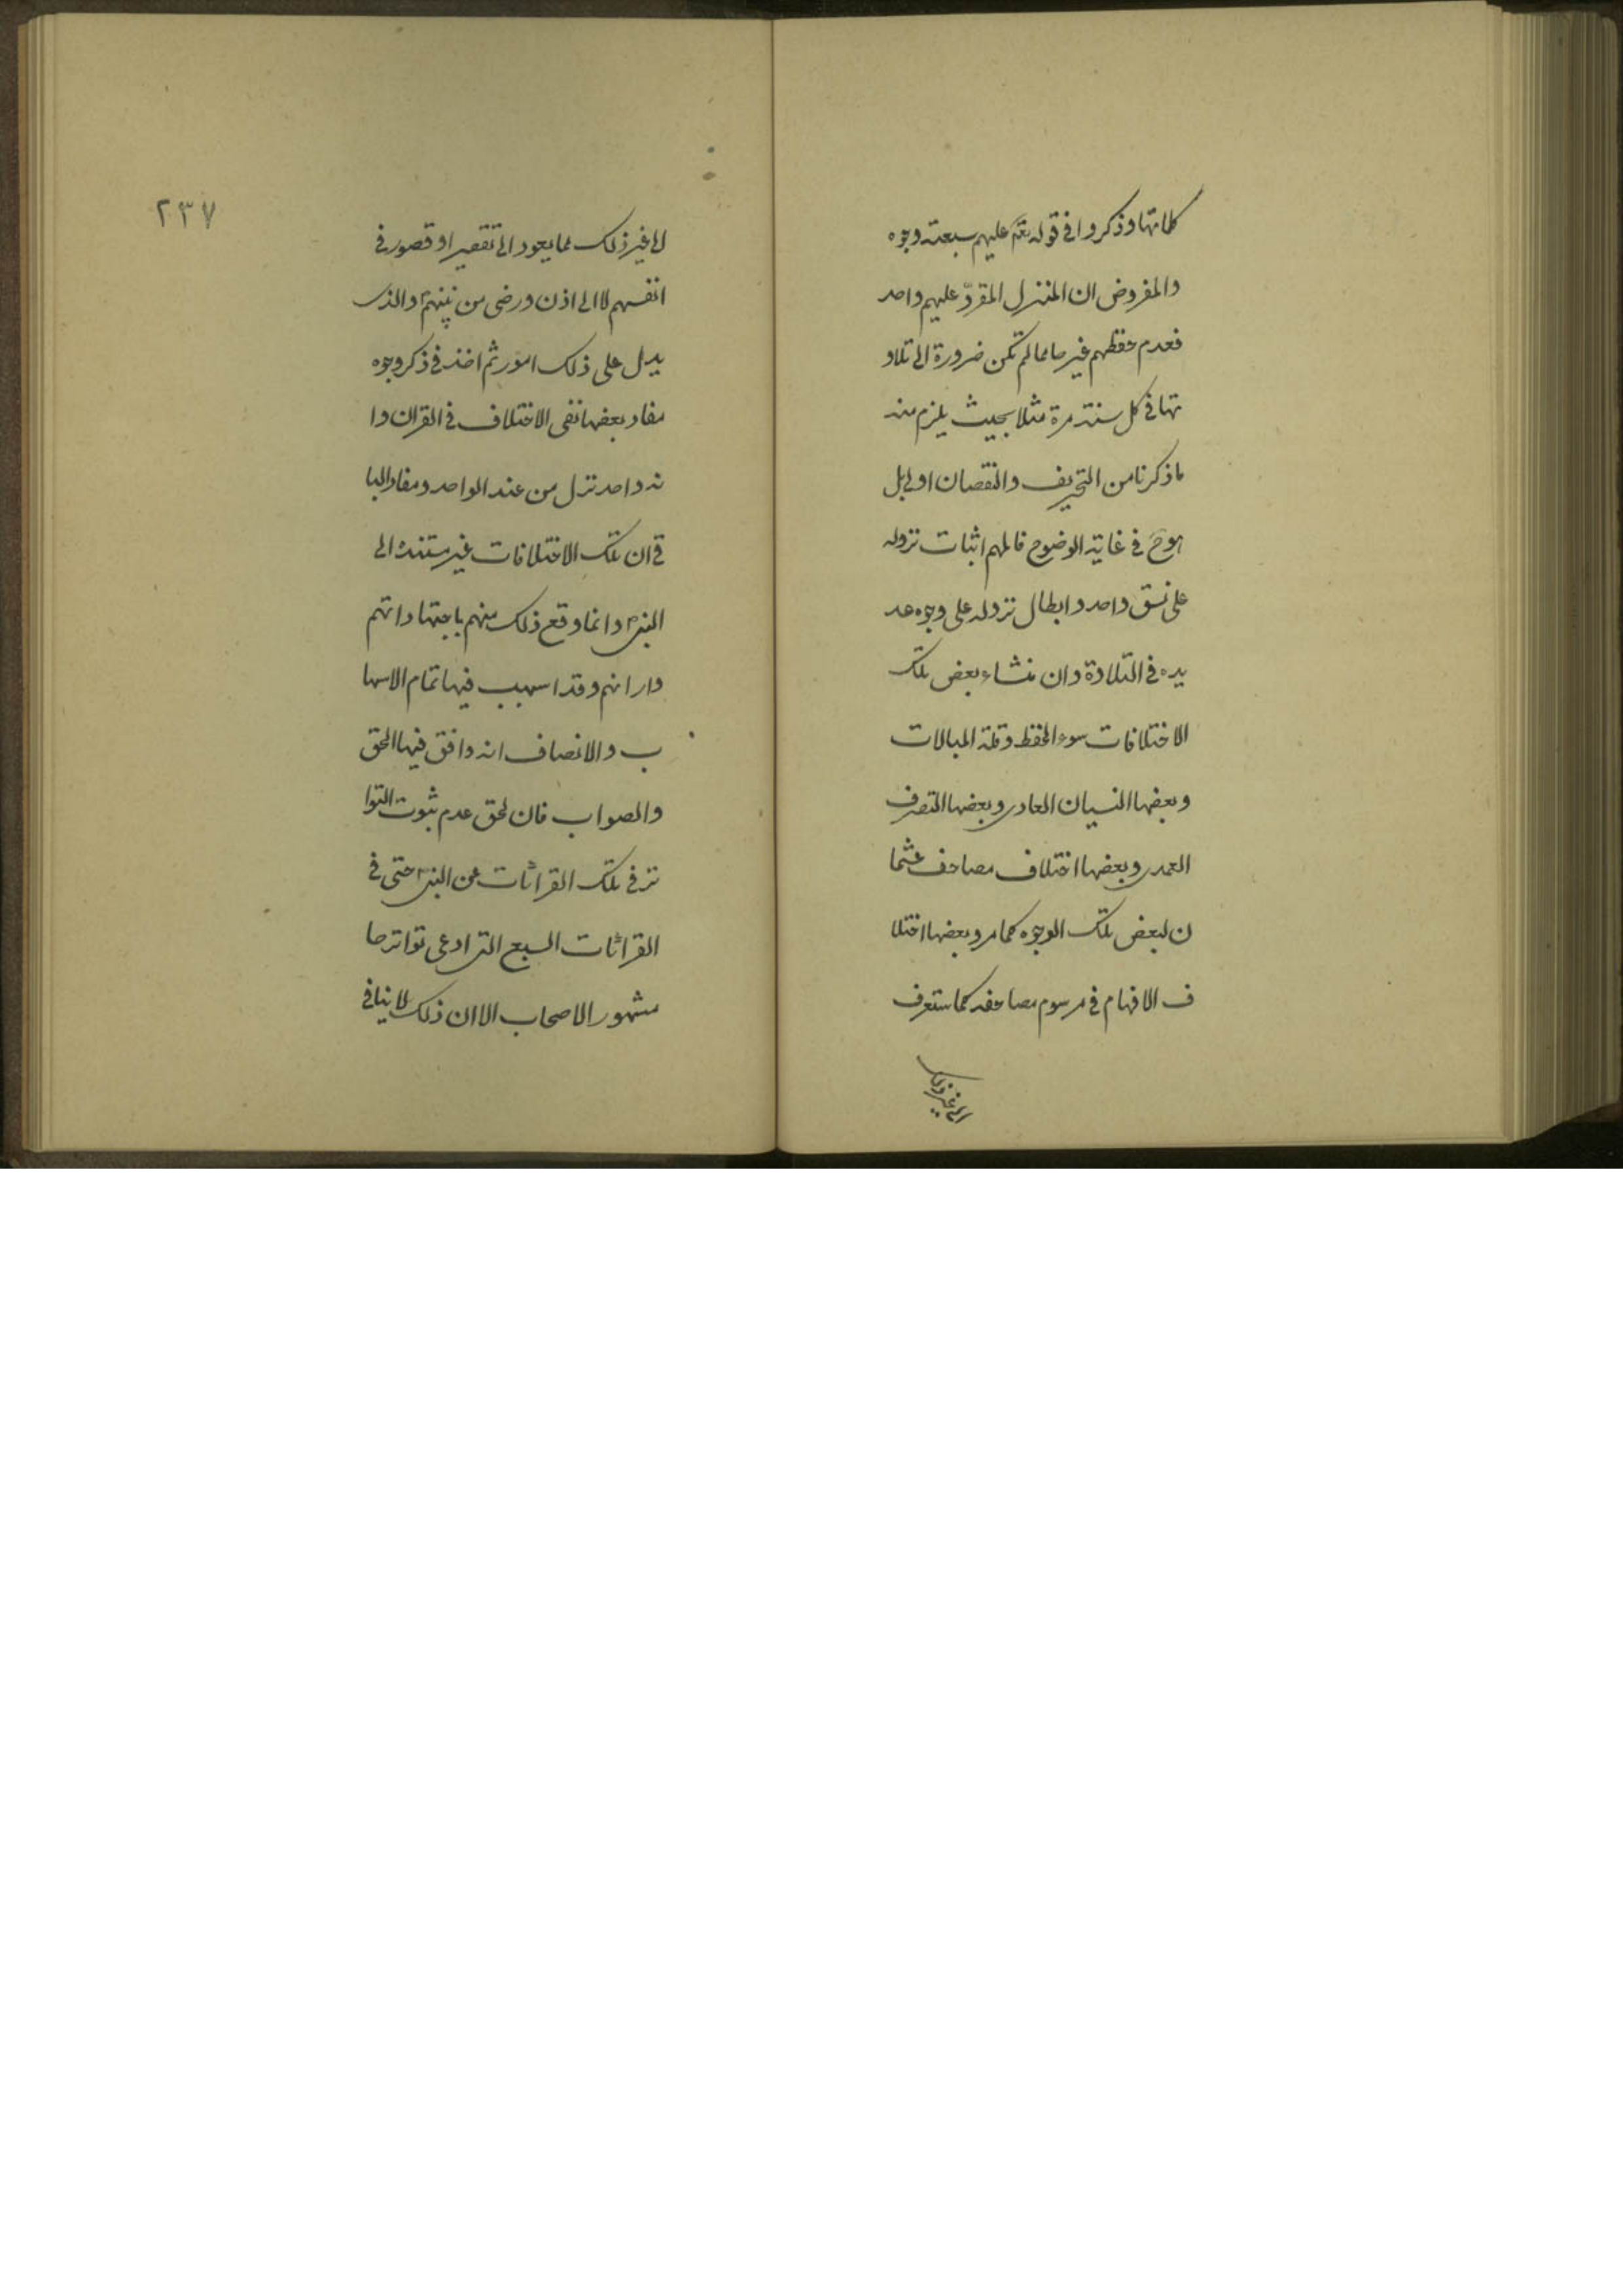 كلماتها وذكروا في قوله تعم عليهم سبعة وجوه
والمفروض ان المنزل المقرو عليهم واحد
فعدم حفظهم غيرها مما لم تكن ضرورة الى تلاو
تها في كل سنة مرة مثلا بحيث يلزم منه
ما ذكرنا من التحريف والنقصان اولى بل
هو ح في غاية الوضوح فالمهم اثبات نزوله
على نسق واحد وابطال نزوله على وجوه عد
يده في التلاوة وان منشاء بعض تلك
الاختلافات سوء الحفظ وقلة المبالات
وبعضها النسيان العادى وبعضها التصرف
العمدى وبعضها اختلاف مصاحف عثما
ن لبعض تلك الوجوه كما مر وبعضها اختلا
ف الافهام في مرسوم مصاحفه كما ستعرف
الى غير ذلك
٢٣٧
الى غير ذلك مما يعود الى تقصير او قصور في
انفسهم لا الى اذن ورضى من نبيهم والذى
يدل على ذلك امور ثم اخذ في ذكر وجوه
مفاد بعضها نفى الاختلاف في القران وا
نه واحد نزل من عند الواحد ومفاد البا
قي ان تلك الاختلافات غير مستندة الى
النبى وانما وقع ذلك منهم باجتهاداتهم
وارائهم وقد اسهب فيها تمام الاسها
ب والانصاف انه وافق فيها الحق
والصواب فان لحق عدم ثبوت التوا
تر في تلك القراثات عن النبى حتى في
القراثات السبع التى ادعى تواترها
مشهور الاصحاب الا ان ذلك لا ينافى